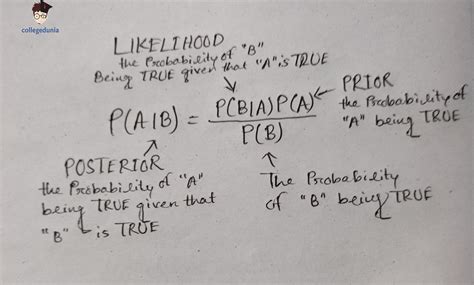 collegedunia
LIKELIHOOD
the Probability of "B"
Being TRUE given that "A" is TRUE
PRIOR
the Probability of
"A" being TRUE
P(A|B) = P(B|A)P(A)
P(B)
POSTERIOR
the Probability of "A"
being TRUE given that
"B" is TRUE
The Probability
of "B" being TRUE